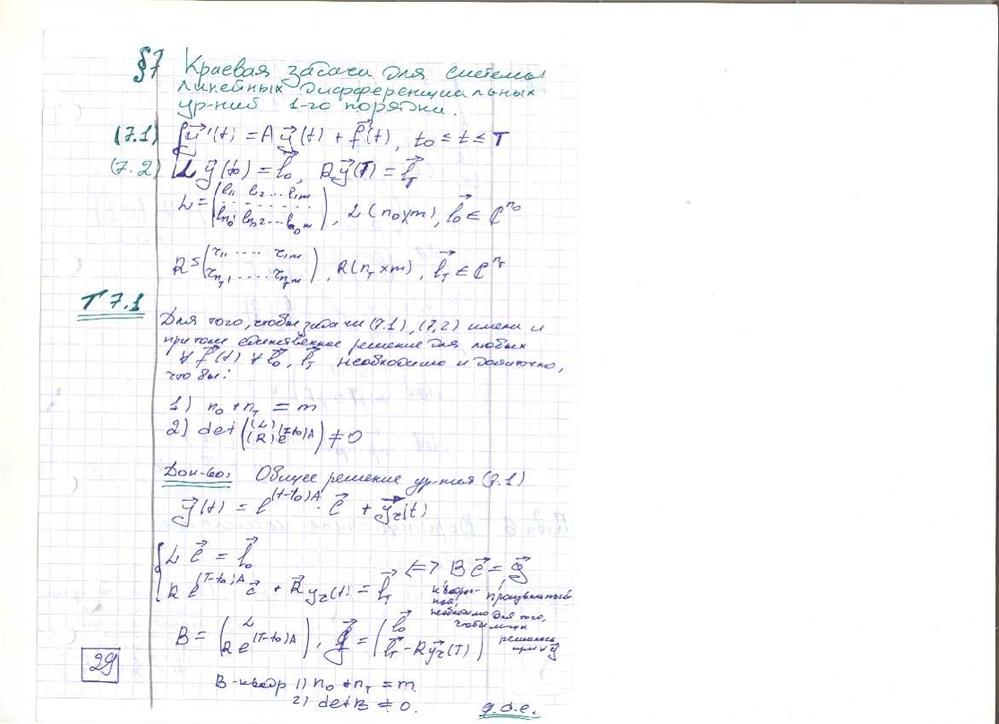 §7 Краевая задача для системы
линейных дифференциальных
ур-ний 1-го порядка.
(7.1) { y⃗'(t) = A y⃗(t) + f⃗(t), t₀ ≤ t ≤ T
(7.2) L y⃗(t₀) = l⃗₀, R y⃗(T) = l⃗_T
L = (l₁₁ l₁₂ ... l₁m
l_n₀1 l_n₀2 ... l_n₀m), L (n₀×m), l⃗₀ ∈ ℂ^n₀
R = (r₁₁ ..... r₁m
r_n_T1 ..... r_n_Tm), R (n_T×m), l⃗_T ∈ ℂ^n_T
T 7.1
Для того, чтобы задачи (7.1), (7.2) имели и
притом единственное решение для любых
∀ f⃗(t) ∀ l⃗₀, l⃗_T необходимо и достаточно,
чтобы:
1) n₀ + n_T = m
2) det ((L) (R) e^(T-t₀)A) ≠ 0
Док-во: Общее решение ур-ния (7.1)
y⃗(t) = e^(t-t₀)A · c⃗ + y⃗_r(t)
{ L c⃗ = l⃗₀
R e^(T-t₀)A c⃗ + R⃗ y_r(t) = l⃗_T <=> B c⃗ = g⃗
квадратная, произвольный
необходимо для того,
чтобы
решалась
при ∀ g⃗
B = (L
R e^(T-t₀)A), g⃗ = (l⃗₀
l⃗_T - R y⃗_r(T))
B - квадр 1) n₀ + n_T = m.
2) det B ≠ 0.
q.d.e.
29